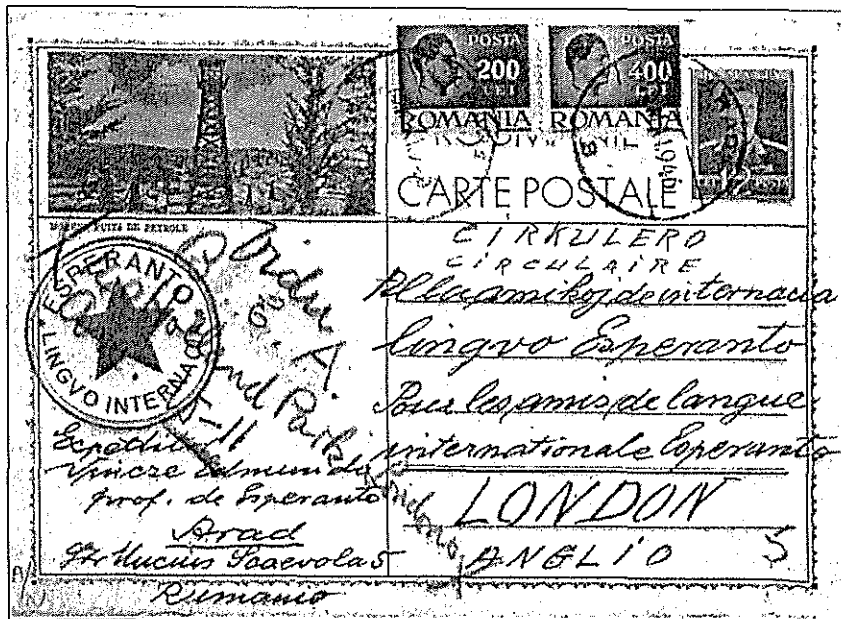 POSTA
200
LEI
ROMANIA
POSTA
400
LEI
ROMANIA
CARTE POSTALE
PUITS DE PETROLE
ESPERANTO
LINGVO INTERNACIA
CIRKULERO
CIRCULAIRE
Al la amikoj de internacia
lingvo Esperanto
Pour les amis de langue
internationale Esperanto
LONDON
ANGLIO
Holland Park
London
Vincze Edmundo
prof. de Esperanto
Arad
Str. Mucius Scaevola 5
Rumanio